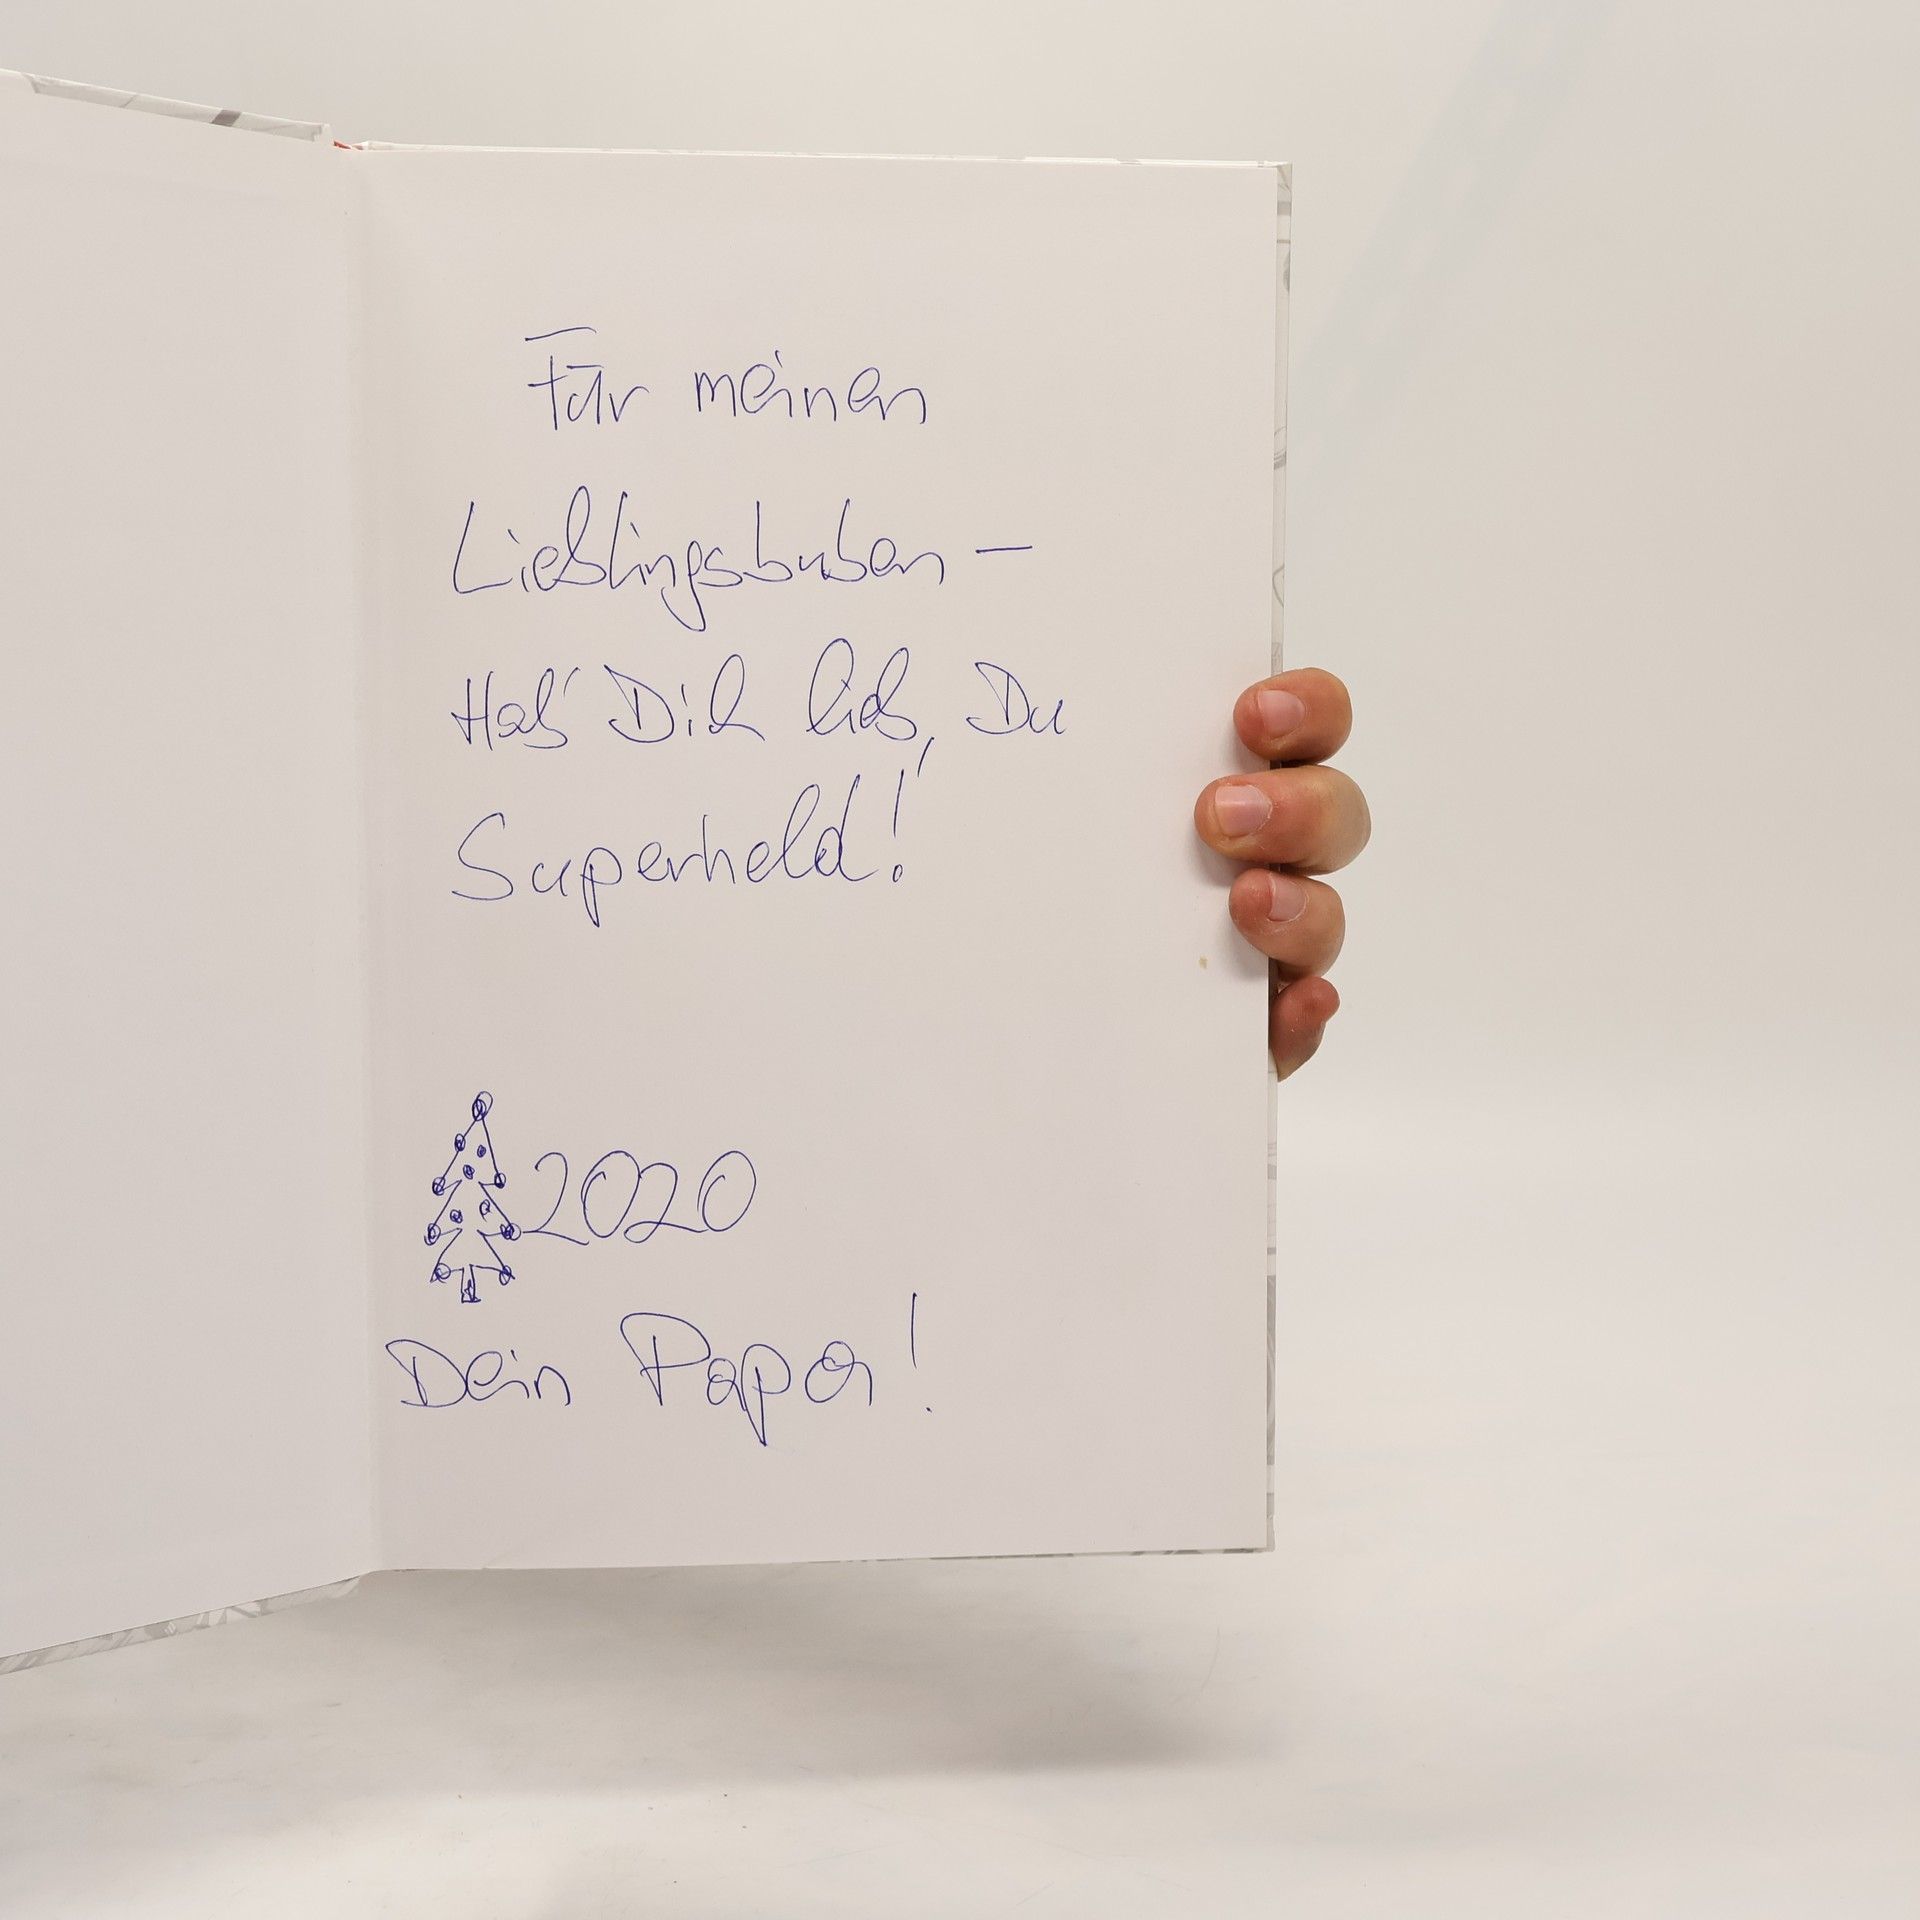 Für meinen
Lieblingsbuben –
Hab' Dich lieb, Du
Superheld!
2020
Dein Papa!